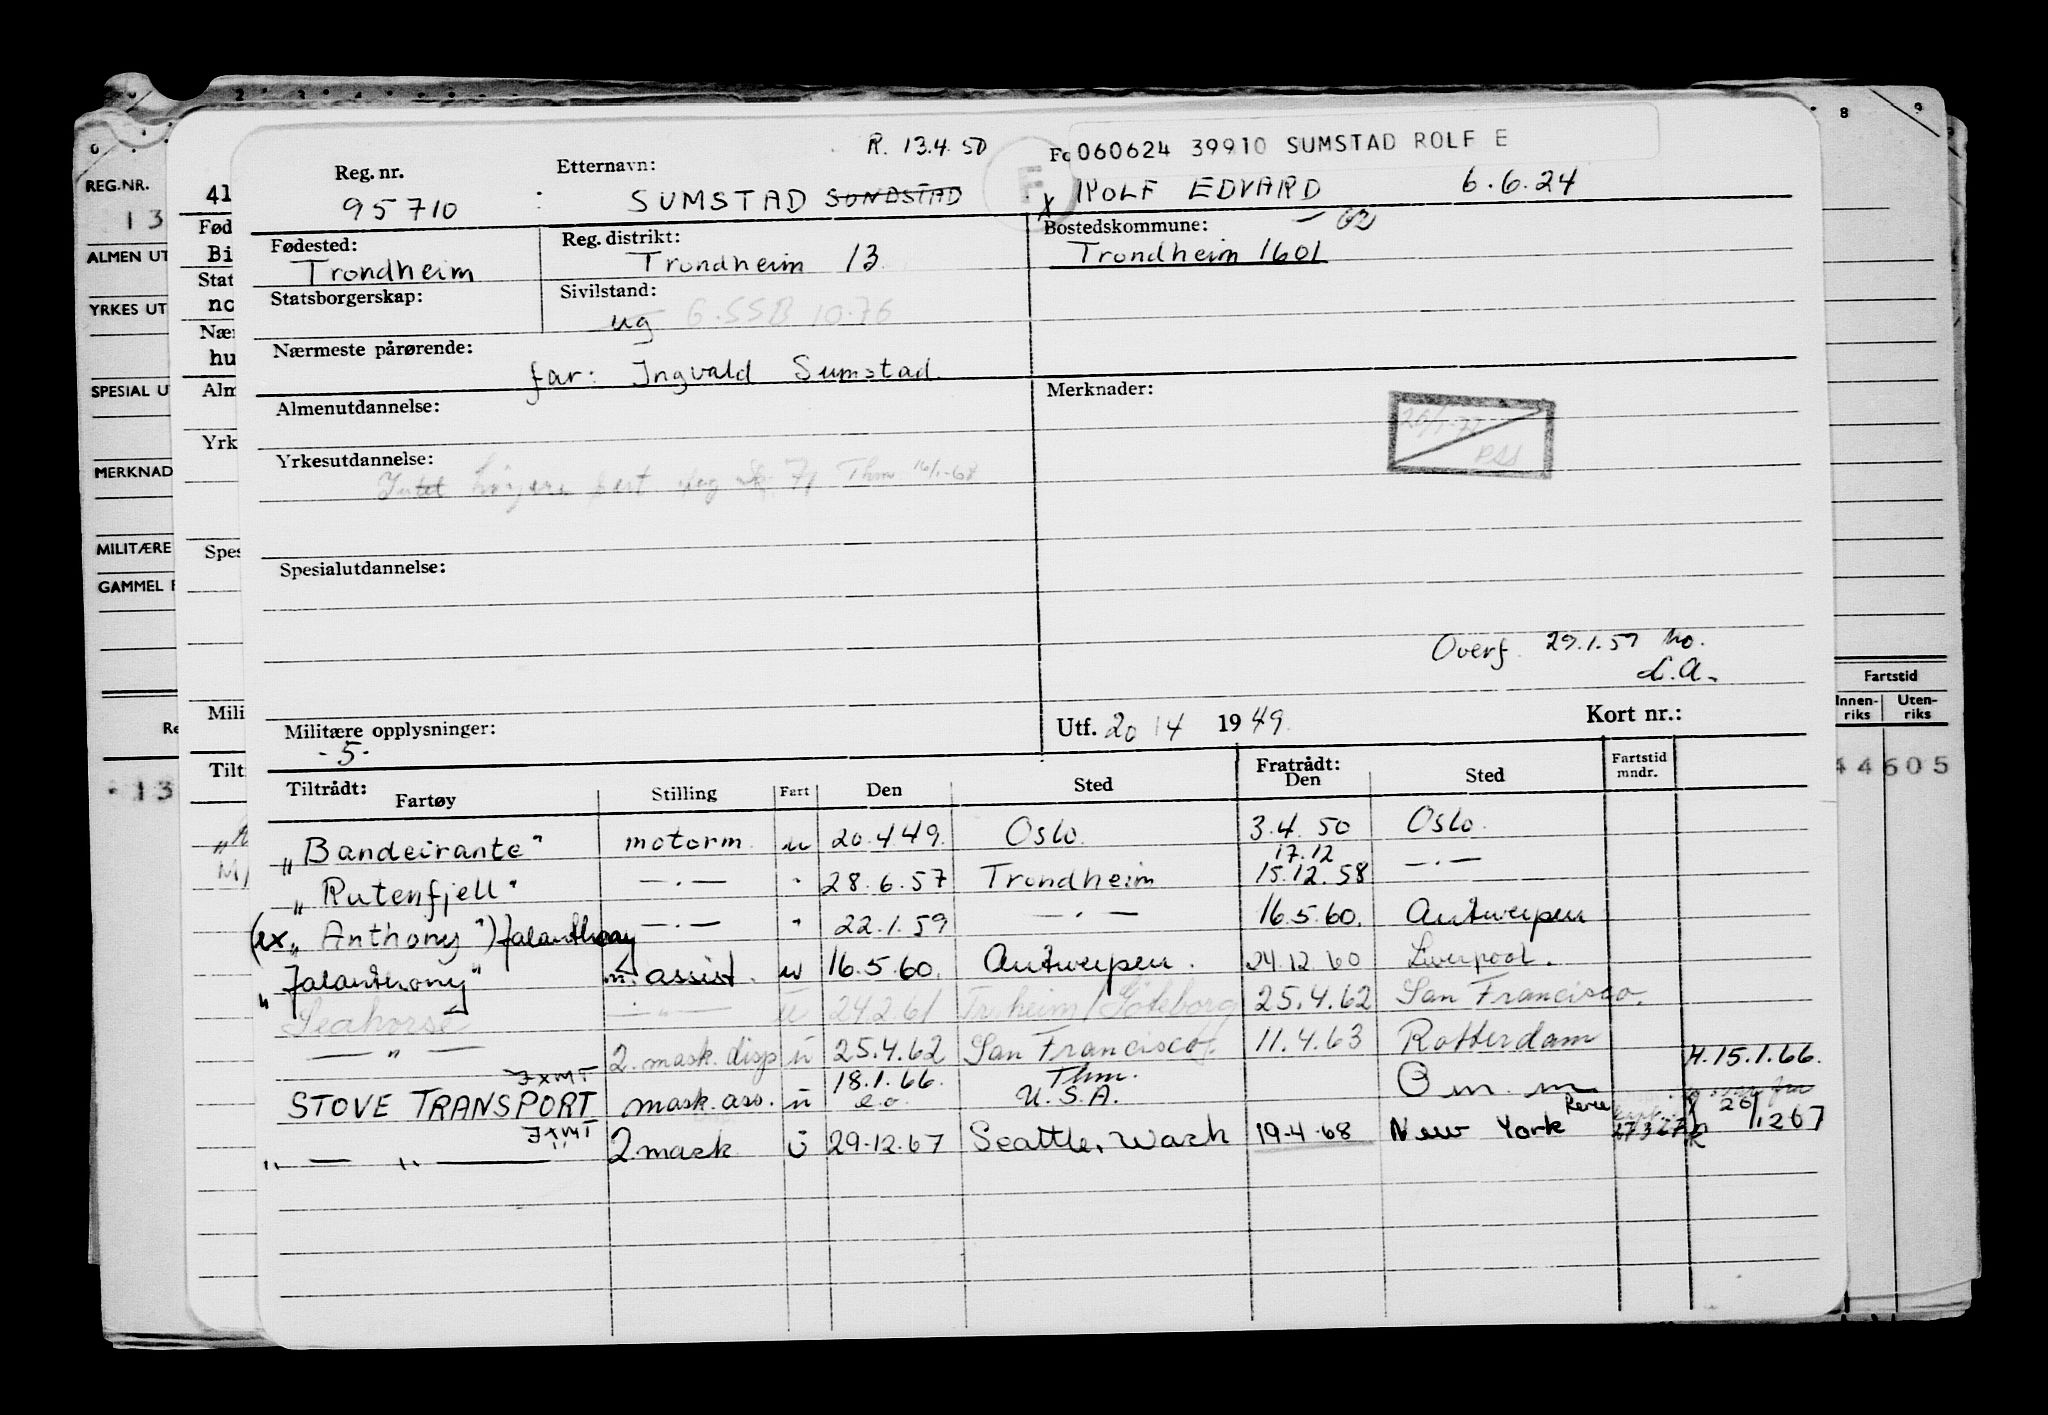 R. 13.4.50
060624 39910 SUMSTAD ROLF E
Reg. nr. Etternavn: Fo
95710 : SUMSTAD SUNDSTAD x ROLF EDVARD 6.6.24
F
Fødested: Reg. distrikt: Bostedskommune:
Trondheim Trondheim 13 Trondheim 1601
Statsborgerskap: Sivilstand:
ug G.SSB 10.76
Nærmeste pårørende:
far: Ingvald Sumstad.
Almenutdannelse: Merknader:
Yrkesutdannelse:
Thm 16/1-68
Spesialutdannelse:
Overf. 29.1.59 Mo.
L.A.
Militære opplysninger: Utf. 20/4 1949. Kort nr.:
-5-
Tiltrådt: Fratrådt: Fartstid mndr.
Fartøy Stilling Fart Den Sted Den Sted
"Bandeirante" motorm. u 20.4.49. Oslo. 3.4.50 Oslo.
17.12
"Rutenfjell" —.— " 28.6.57 Trondheim 15.12.58 —.—
(ex "Anthony") Jalanthony —.— " 22.1.59 —.— 16.5.60. Antwerpen
"Jalanthony" m. assist. u 16.5.60. Antwerpen. 24.12.60 Liverpool.
Seahorse —"— u 24.2.61 Trnheim/Göteborg 25.4.62 San Francisco.
—"— 2. mask. disp u 25.4.62 San Francisco. 11.4.63 Rotterdam
H.15.1.66.
JXMT 18.1.66. Thm.
STOVE TRANSPORT mask. ass. u e.o. U.S.A.
JXMT
" — " — 2 mask u 29-12-67 Seattle, Wash 19-4-68 New York 27367 20/1267
REG.NR.
13
ALMEN UT
YRKES UT
SPESIAL U
MERKNAD
MILITÆRE
GAMMEL
Re
13
41
Fød
Bi
Stat
no
Nær
hu
Alm
Yrk
Spes
Mili
Tilt
Fartstid
Innen-riks Uten-riks
44605